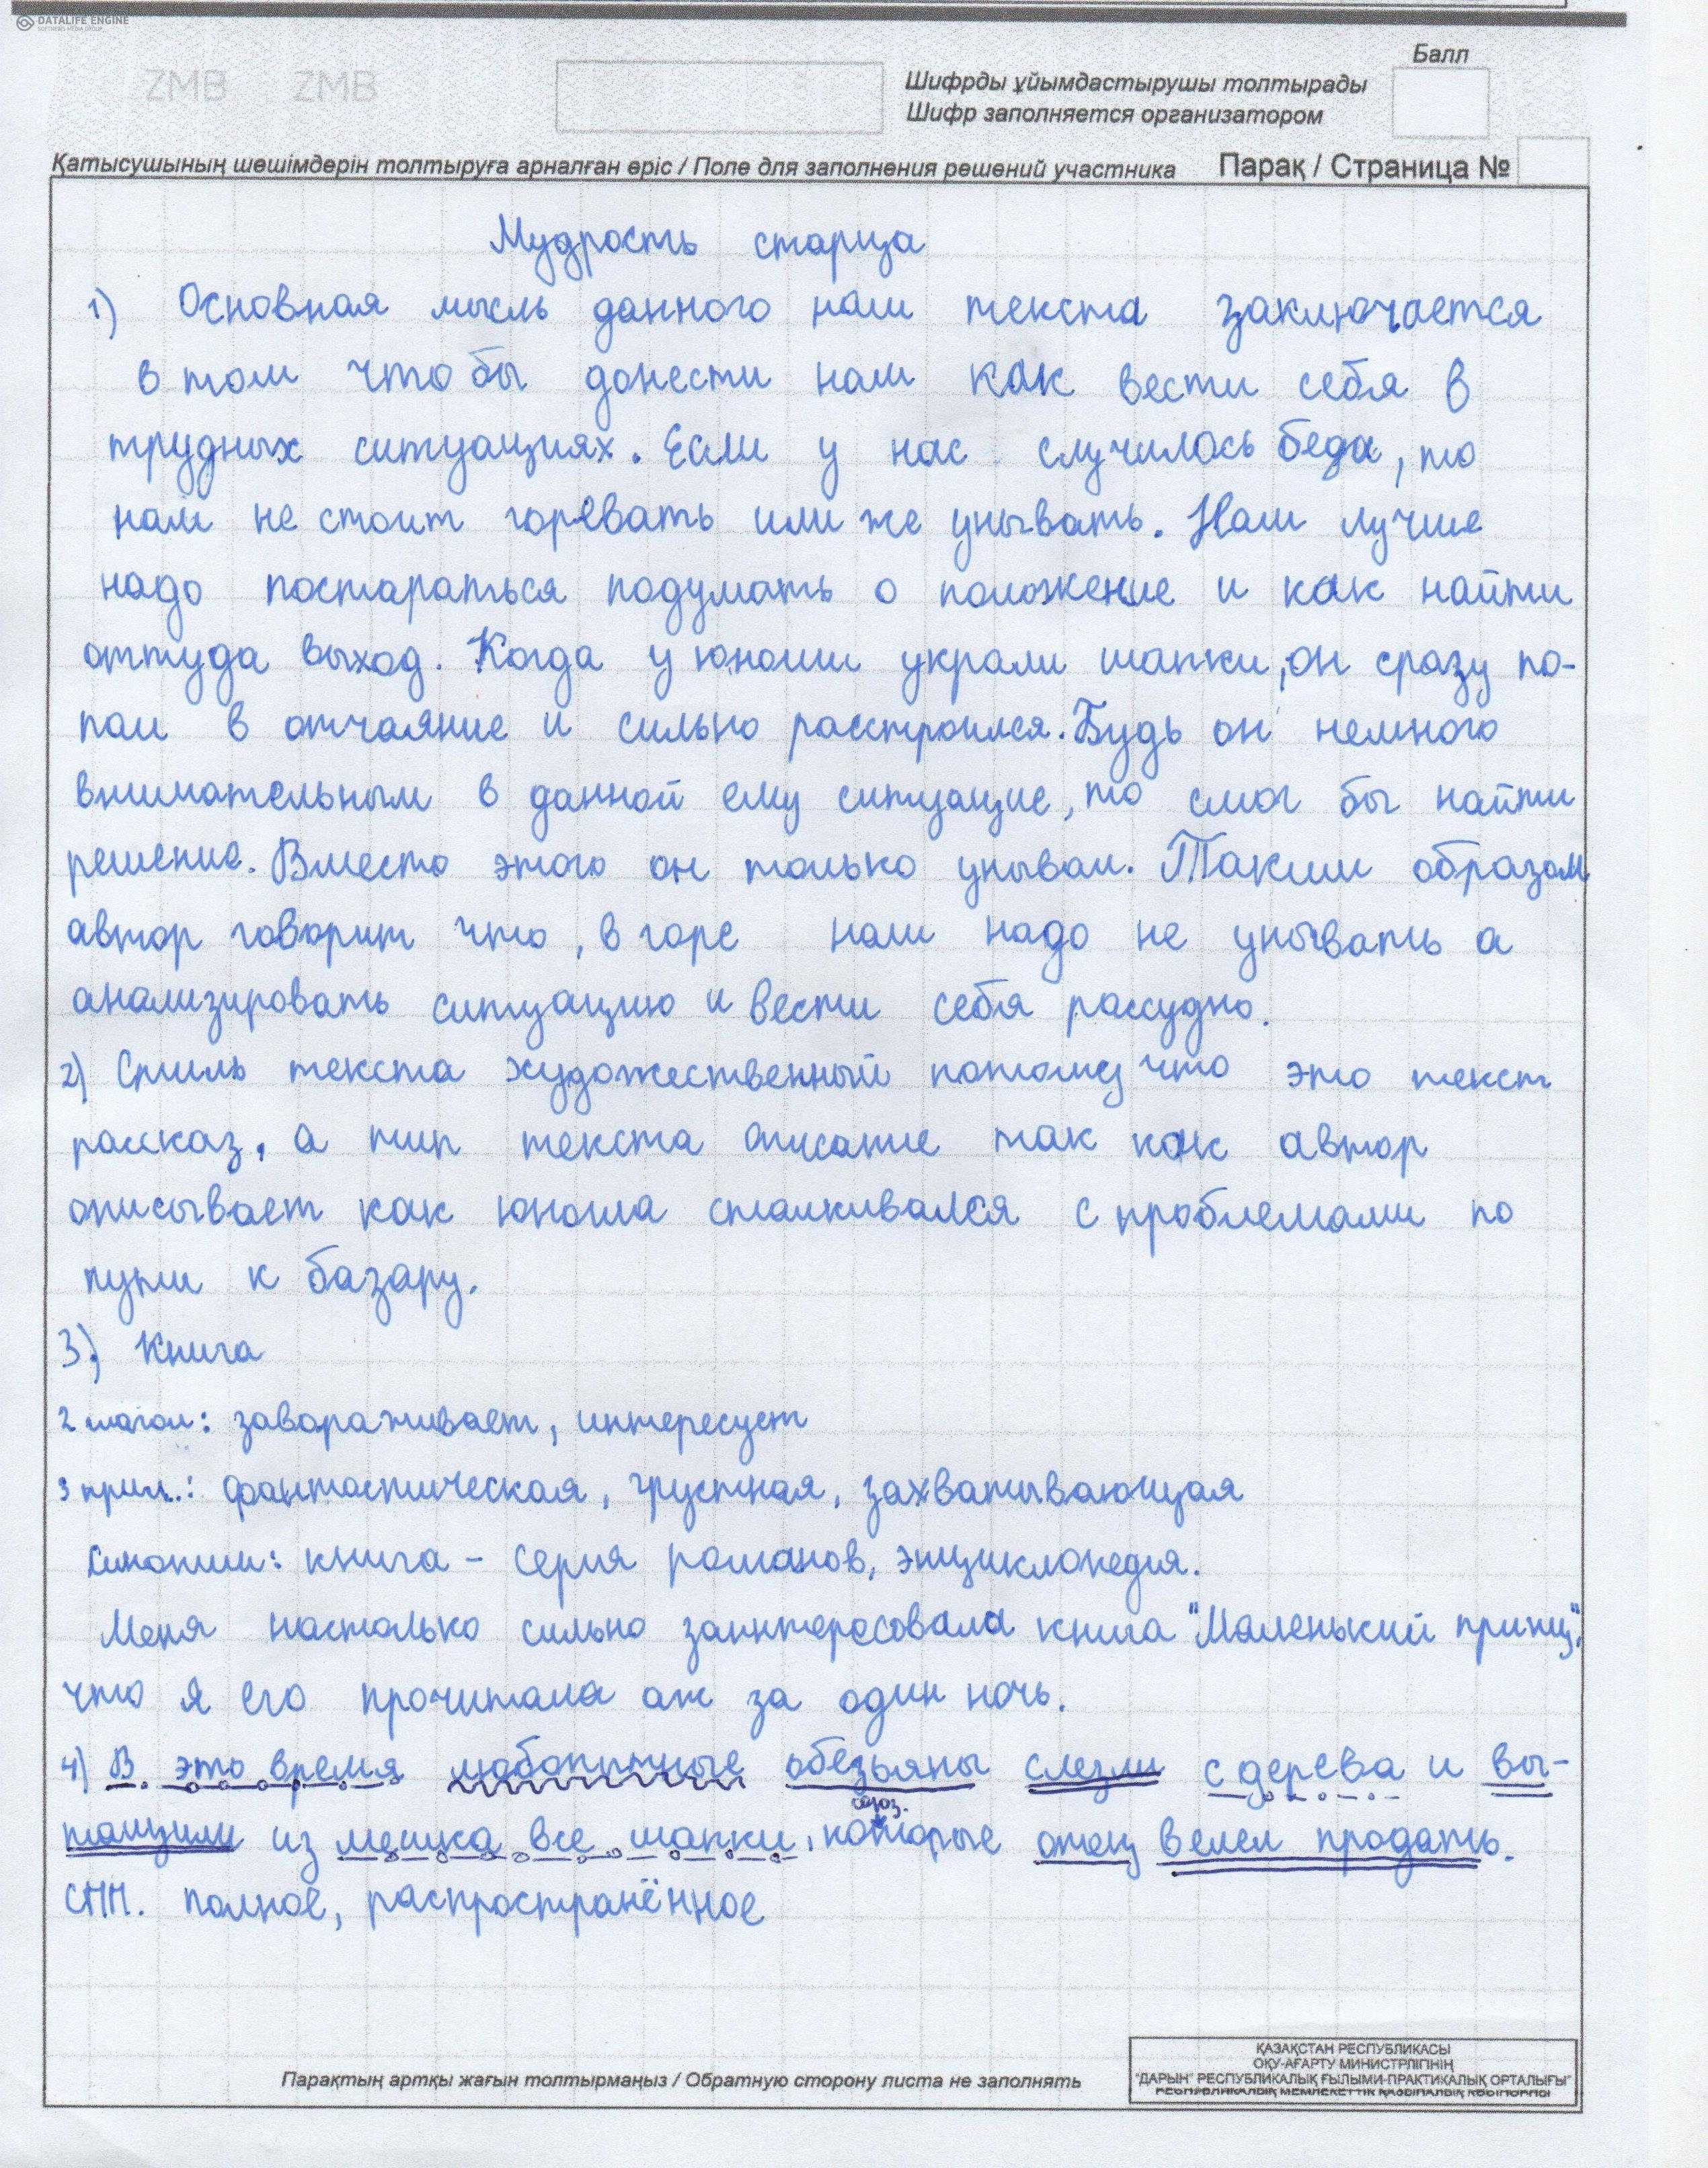 DATALIFE ENGINE
SOFTNEWS MEDIA GROUP
ZMB ZMB
Балл
Шифрды ұйымдастырушы толтырады
Шифр заполняется организатором
Қатысушының шешімдерін толтыруға арналған өріс / Поле для заполнения решений участника Парақ / Страница №
Мудрость старца
1) Основная мысль данного нам текста заключается
в том что бы донести нам как вести себя в
трудных ситуациях. Если у нас случилось беда, то
нам не стоит горевать или же унывать. Нам лучше
надо постараться подумать о положение и как найти
оттуда выход. Когда у юноши украли шапки, он сразу по-
пал в отчаяние и сильно расстроился. Будь он немного
внимательным в данной ему ситуацие, то смог бы найти
решение. Вместо этого он только унывал. Таким образом
автор говорит что, в горе нам надо не унывать а
анализировать ситуацию и вести себя рассудно.
2) Стиль текста художественный потому что это текст
рассказ, а тип текста описание так как автор
описывает как юноша сталкивался с проблемами по
пути к базару.
3) Книга
2 глагол: завораживает, интересует
3 прил.: фантастическая, грустная, захватывающая
Синоним: книга - серия романов, энциклопедия.
Меня настолько сильно заинтересовала книга "Маленький принц",
что я его прочитала аж за один ночь.
4) В это время любопытные обезьяны слезли с дерева и вы-
союз.
тащили из мешка все шапки, которые отец велел продать.
СПП. полное, распространённое
Парақтың артқы жағын толтырмаңыз / Обратную сторону листа не заполнять
ҚАЗАҚСТАН РЕСПУБЛИКАСЫ
ОҚУ-АҒАРТУ МИНИСТРЛІГІНІҢ
"ДАРЫН" РЕСПУБЛИКАЛЫҚ ҒЫЛЫМИ-ПРАКТИКАЛЫҚ ОРТАЛЫҒЫ"
РЕСПУБЛИКАЛЫҚ МЕМЛЕКЕТТІК ҚАЗЫНАЛЫҚ КӘСІПОРНЫ